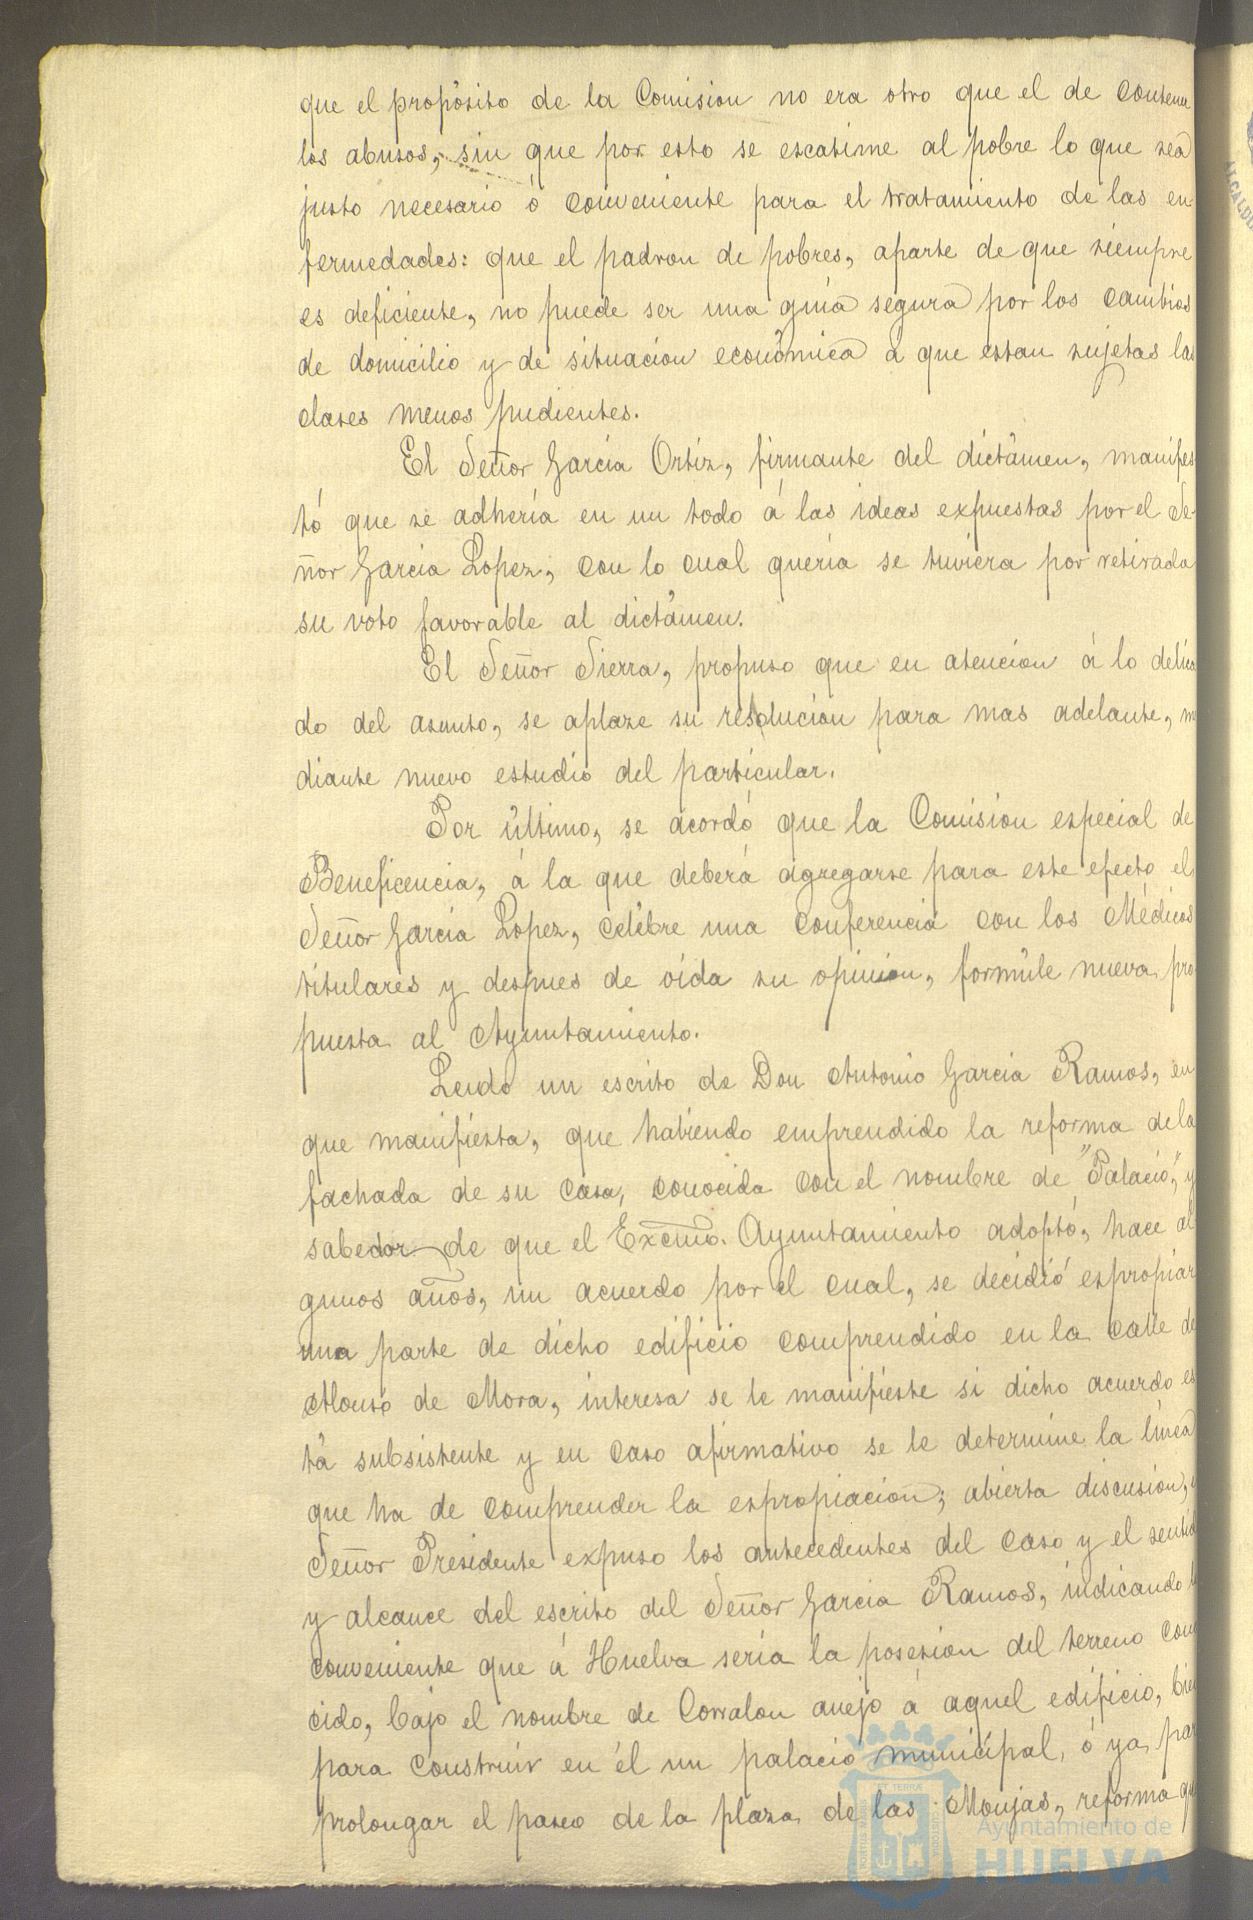 que el propósito de la Comision no era otro que el de contener
los abusos, sin que por esto se escatime al pobre lo que sea
justo necesario ó conveniente para el tratamiento de las en-
fermedades: que el padron de pobres, aparte de que siempre
es deficiente, no puede ser una guía segura por los cambios
de domicilio y de situacion económica á que estan sujetas las
clases menos pudientes.
El Señor Garcia Ortiz, firmante del dictámen, manifes
tó que se adhería en un todo á las ideas expuestas por el Se-
ñor Garcia Lopez, con lo cual quería se tuviera por retirada
su voto favorable al dictámen.
El Señor Sierra, propuso que en atencion á lo delica
do del asunto, se aplaze su resolucion para mas adelante, m
diante nuevo estudio del particular.
Por último, se acordó que la Comision especial de
Beneficencia, á la que deberá agregarse para este efecto el
Señor Garcia Lopez, celébre una conferencia con los Médicos
titulares y despues de oida su opinion, formúle nueva pro
puesta al Ayuntamiento.
Leido un escrito de Don Antonio Garcia Ramos, en
que manifiesta, que habiendo emprendido la reforma de la
fachada de su casa, conocida con el nombre de "Palacio," y
sabedor de que el Excmo. Ayuntamiento adoptó, hace al
gunos años, un acuerdo por el cual, se decidió expropiar
una parte de dicho edificio comprendido en la calle de
Alonso de Mora, interesa se le manifieste si dicho acuerdo es
tá subsistente y en caso afirmativo se le determine la línea
que ha de comprender la expropiacion; abierta discusion,
Señor Presidente expuso los antecedentes del caso y el sentid
y alcance del escrito del Señor Garcia Ramos, indicando l
conveniente que á Huelva sería la posesion del terreno con
cido, bajo el nombre de Corralon anejo á aquel edificio, bien
para construir en él un palacio municipal, ó ya, par
prolongar el paseo de la plaza de las Monjas, reforma qu
Ayuntamiento de
HUELVA